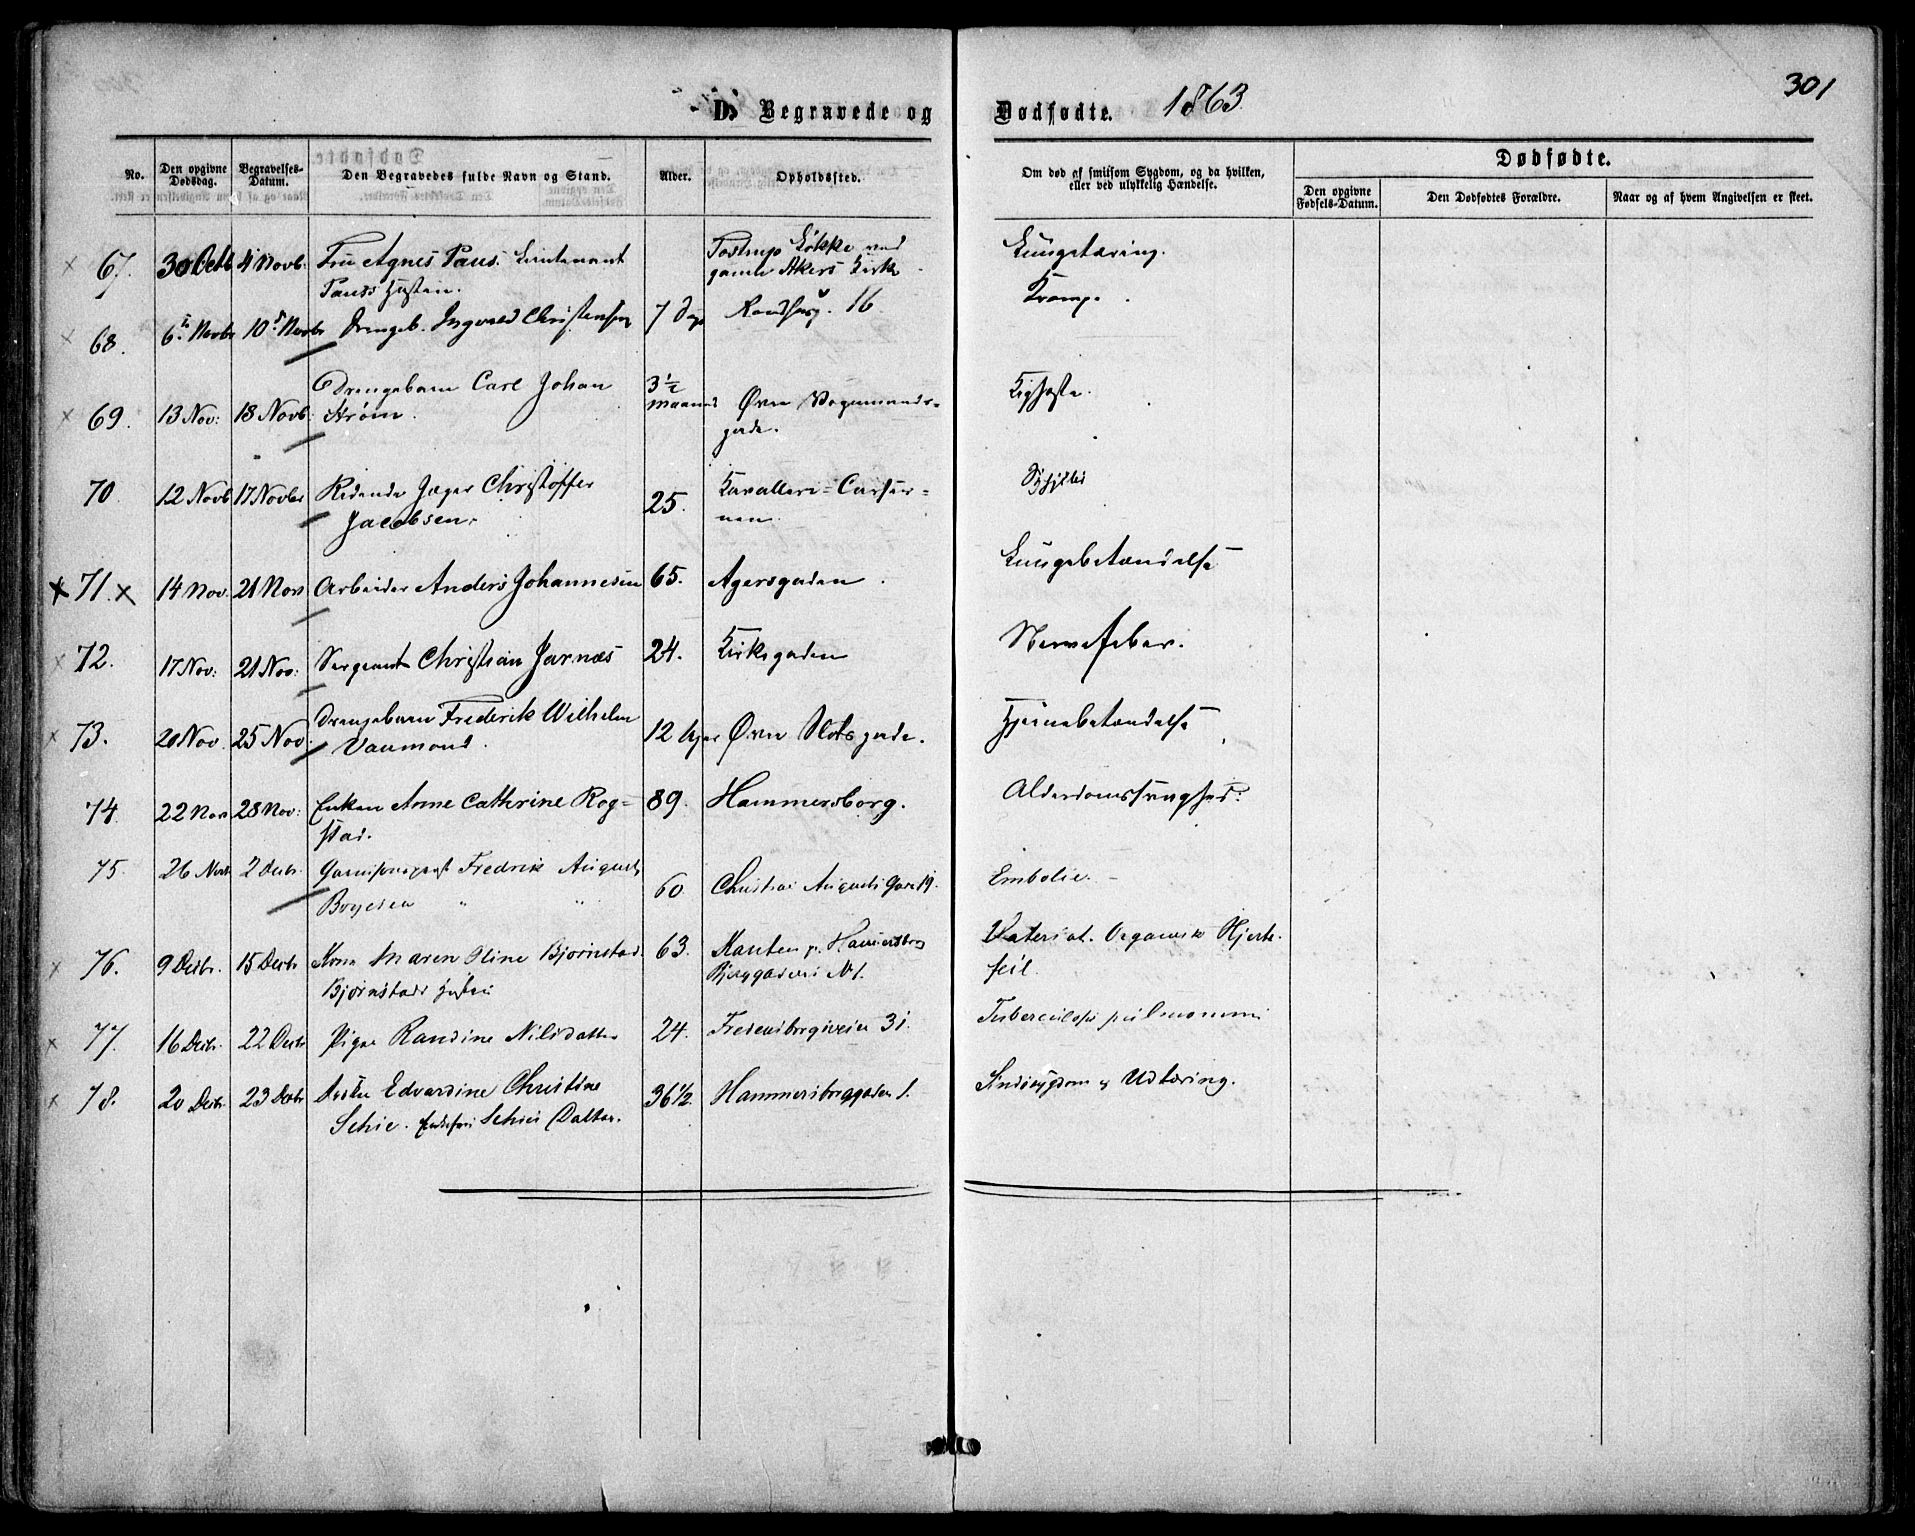 301
D. Begravede og Dødfødte. 1863
No.
Den opgivne Dødsdag.
Begravelses-Datum.
Den Begravedes fulde Navn og Stand.
Alder.
Opholdssted.
Om død af smitsom Sygdom, og da hvilken, eller ved ulykkelig Hændelse.
Dødfødte.
Den opgivne Fødsels-Datum.
Den Dødfødtes Forældre.
Naar og af hvem Angivelsen er skeet.
67. 30 Octb 4 Novb. Fru Agnes Paus. Lieutenant Tostrup Løkke ved Lungetæring.
Paus's Hustru. gamle Akers Kirke
68. 6te Novbr 10de Novbr Drengeb. Ingvald Christensen 7 Dage 16 Krampe
69. 13 Nov: 18 Novb. Drengebarn Carl Johan 3½ Maaned Øvre Kighoste.
Strøm. gade.
70. 12 Novb 17 Novbr Ridende Jæger Christoffer 25. Kavalleri=Caser=
Jacobsen. nen
71. 14 Nov. 21 Nov Arbeider Anders Johannesen 65. Agersgaden Lungebetændelse
72. 17 Nov: 21 Nov: Sergeant Christian Jarnæs 24. Kirkegaden Nervefeber.
73. 20 Nov. 25 Nov. Drengebarn Frederik Wilhelm 12 Uger Øvre Slotsgade. Hjernebetændelse
Vaumond.
74. 22 Nov 28 Nov: Enken Anne Cathrine Rog= 89. Hammersborg. Alderdomssvaghed.
stad.
75. 26 Novbr 2 Decbr. Garnisonsprest Fredrik August 60 Christian Augusts Gade 19. Embolie.
Boyesen " "
76. 9 Decbr. 15 Decbr Kone Maren Oline Bjørnstad. 63. Organisk Hjerte-
Bjørnstads Hustru Bjerggaden No 1. feil.
77. 16 Decbr. 22 Decbr Pige Randine Nilsdatter 24. Fredensborgveien 31. Tuberculosis pulmonum
78. 20 Decbr. 23 Decbr Edvardine Christine 36½. Hammersborggaden 1. Sindssygdom og Udtæring.
Schie. Schies Datter.